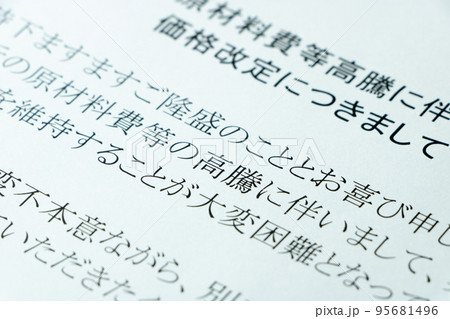 原材料費等高騰に伴
価格改定につきまして
下ますますご隆盛のこととお喜び申し
の原材料費等の高騰に伴いまして、
を維持することが大変困難となって
変不本意ながら、別
いただきたく
PIXTA
pixta.jp - 95681496